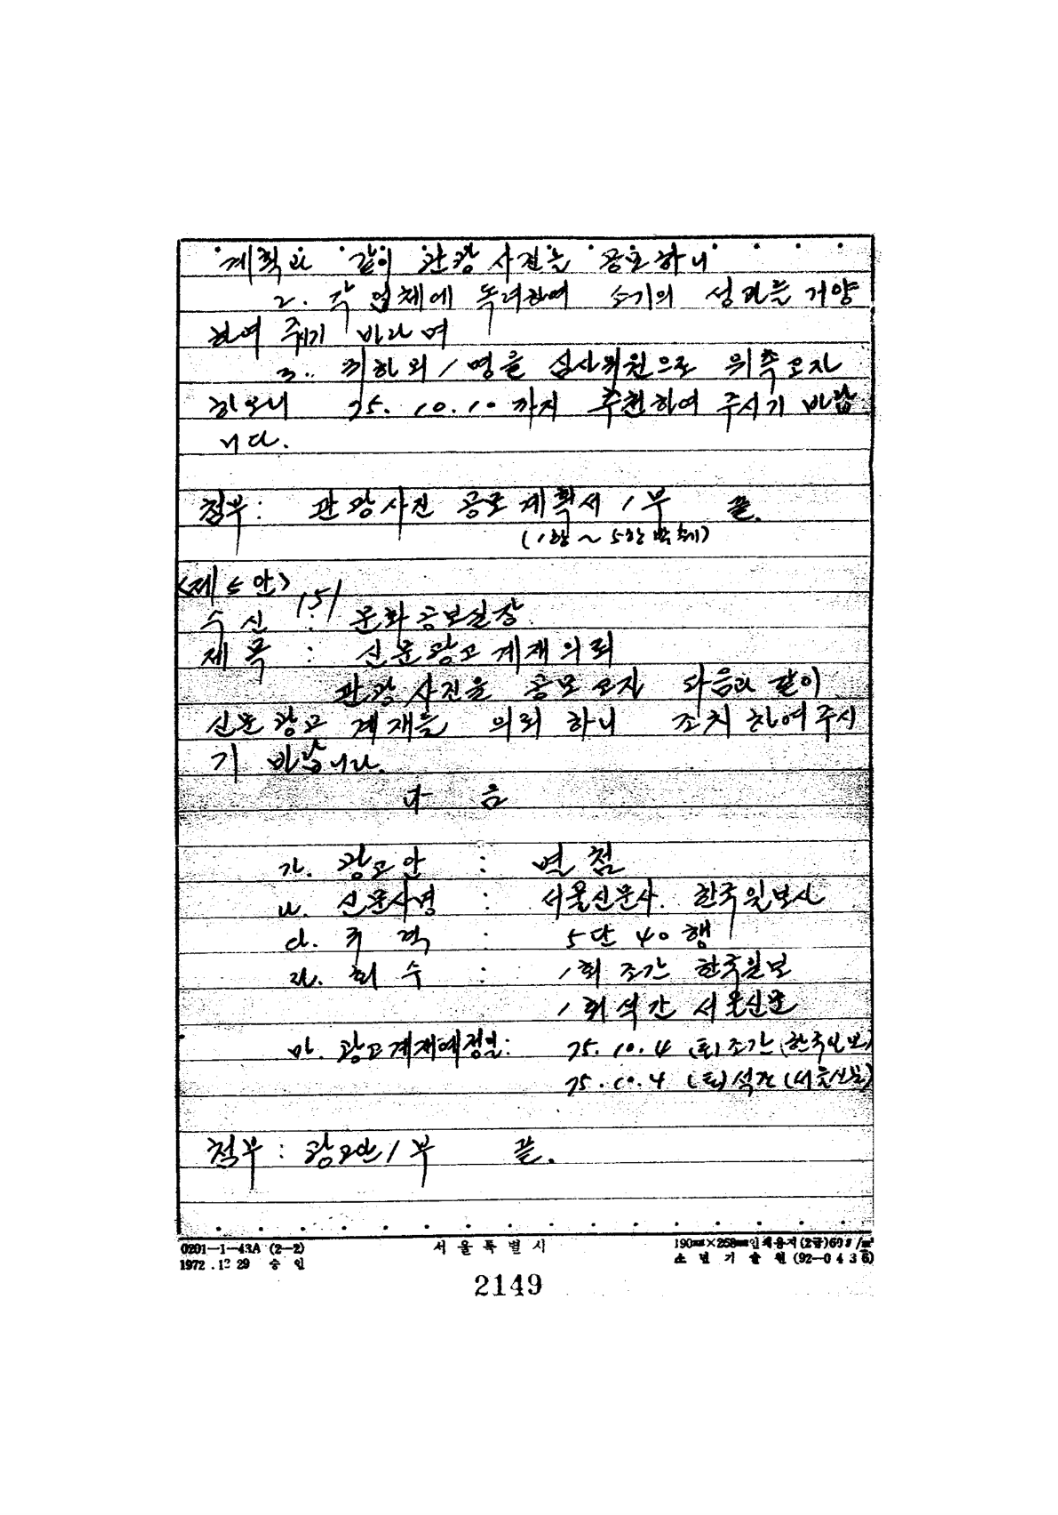 계획과 같이 관광사진을 공모하니
2. 각 업체에 독려하여 소기의 성과를 거양
하여 주시기 바라며
3. 귀하 외 1명을 심사위원으로 위촉코자
하오니 75. 10. 10 까지 추천하여 주시기 바랍
니다.
첨부: 관광사진 공모 계획서 1부 끝.
(1항 ~ 5항 발췌)
<제 5안>
수신 : 문화공보실장
제목 : 신문광고 게재 의뢰
관광사진을 공모코자 다음과 같이
신문광고 게재를 의뢰하니 조치하여 주시
기 바랍니다.
다 음
가. 광고안 : 별첨
나. 신문사명 : 서울신문사. 한국일보사
다. 규격 : 5단 40행
라. 회수 : 1회 조간 한국일보
1회 석간 서울신문
마. 광고게재예정일: 75. 10. 4 (토) 조간 (한국일보)
75. 10. 4 (토) 석간 (서울신문)
첨부 : 광고안 1부 끝.
0201-1-43A (2-2) 서울특별시 190㎜×268㎜인쇄용지(2급)60g/㎡
1972 . 12 29 승인
2149